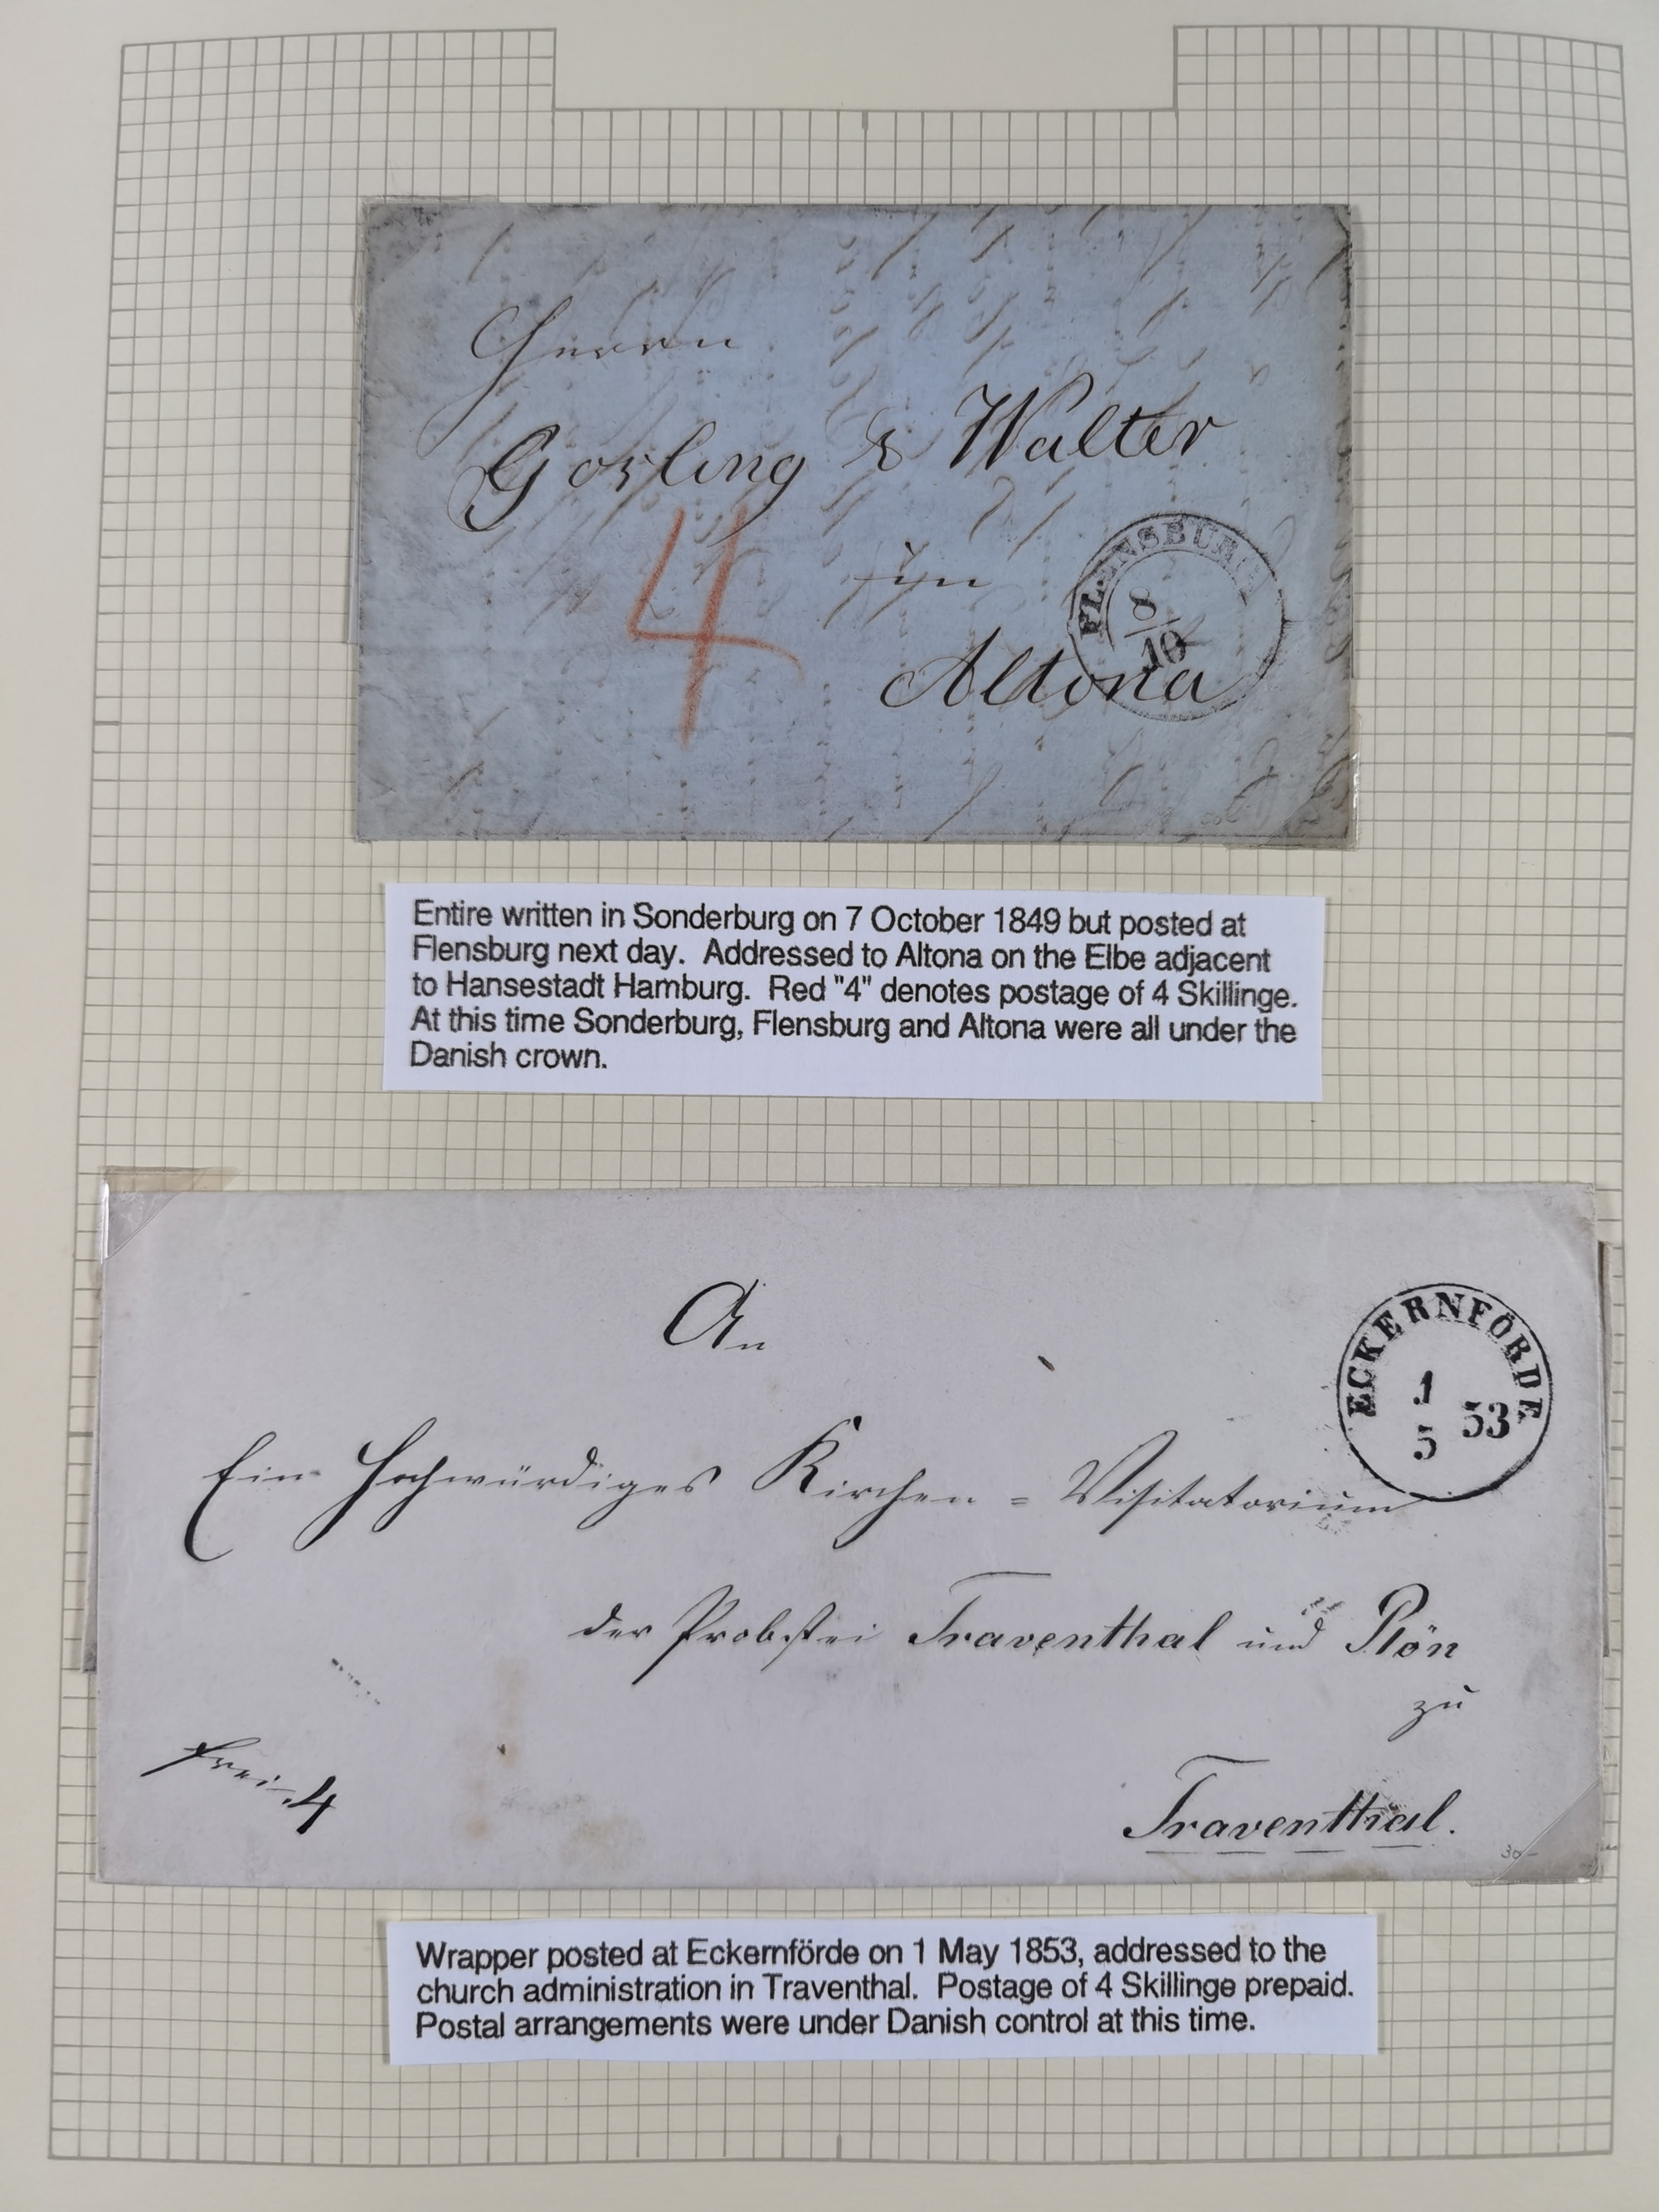 Herrn
Gosling & Walter
4
in
FLENSBURG
8
10
Altona
Entire written in Sonderburg on 7 October 1849 but posted at
Flensburg next day. Addressed to Altona on the Elbe adjacent
to Hansestadt Hamburg. Red "4" denotes postage of 4 Skillinge.
At this time Sonderburg, Flensburg and Altona were all under the
Danish crown.
An
ECKERNFÖRDE
1
5 53
Ein Hochwürdiges Kirchen = Visitatorium
der Probstei Traventhal und Plön
zu
frei. 4
Traventhal.
30-
Wrapper posted at Eckernförde on 1 May 1853, addressed to the
church administration in Traventhal. Postage of 4 Skillinge prepaid.
Postal arrangements were under Danish control at this time.